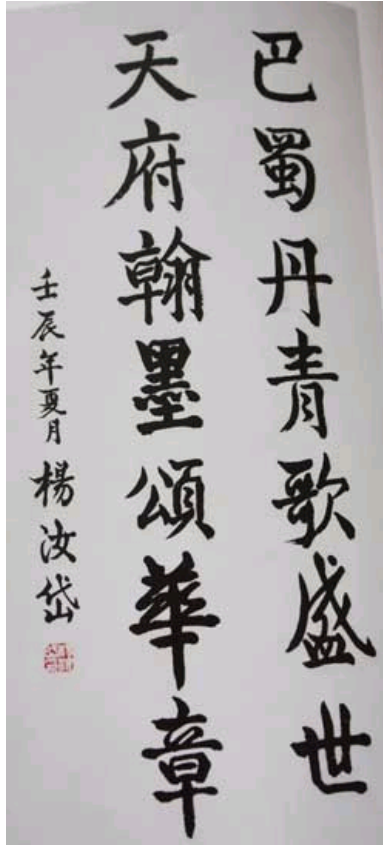 巴蜀丹青歌盛世
天府翰墨頌華章
壬辰年夏月 楊汝岱